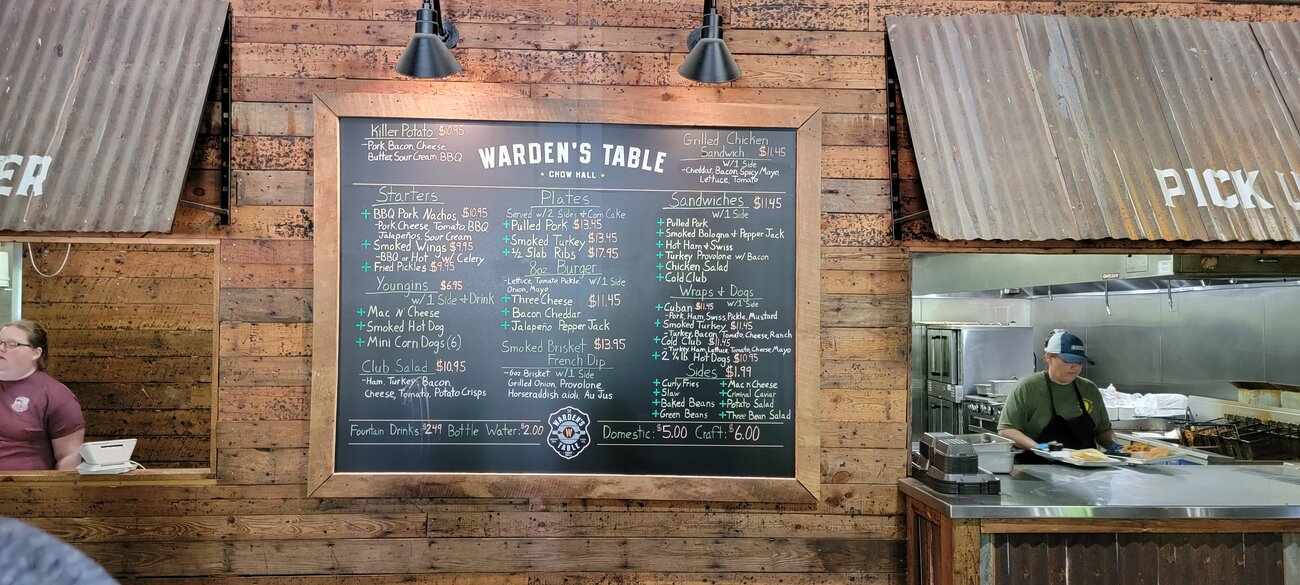 ER
PICK U
Killer Potato $10.95
-Pork, Bacon, Cheese,
Butter, Sour Cream, BBQ
WARDEN'S TABLE
CHOW HALL
Grilled Chicken
Sandwich $11.45
w/1 Side
-Cheddar, Bacon, Spicy Mayo,
Lettuce, Tomato
Starters
+ BBQ Pork Nachos $10.95
-Pork, Cheese, Tomato, BBQ
Jalapeños, Sour Cream
+ Smoked Wings $9.95
-BBQ or Hot w/ Celery
+ Fried Pickles $9.95
Youngins $6.95
w/1 Side + Drink
+ Mac N Cheese
+ Smoked Hot Dog
+ Mini Corn Dogs (6)
Club Salad $10.95
-Ham, Turkey, Bacon
Cheese, Tomato, Potato Crisps
Plates
Served w/ 2 Sides + Corn Cake
+ Pulled Pork $13.45
+ Smoked Turkey $13.45
+ ½ Slab Ribs $17.95
8oz. Burger
-Lettuce, Tomato, Pickle, w/1 Side
Onion, Mayo
+ Three Cheese $11.45
+ Bacon Cheddar
+ Jalapeño Pepper Jack
Smoked Brisket $13.95
French Dip
-6oz. Brisket w/1 Side
Grilled Onion, Provolone
Horseraddish aioli, Au Jus
Sandwiches $11.45
w/1 Side
+ Pulled Pork
+ Smoked Bologna + Pepper Jack
+ Hot Ham + Swiss
+ Turkey Provolone w/ Bacon
+ Chicken Salad
+ Cold Club
Wraps + Dogs
+ Cuban $11.45 w/1 Side
-Pork, Ham, Swiss, Pickle, Mustard
+ Smoked Turkey $11.45
-Turkey, Bacon, Tomato, Cheese, Ranch
+ Cold Club $11.45
-Turkey, Ham, Lettuce, Tomato, Cheese, Mayo
+ 2 ¼lb Hot Dogs $10.95
Sides $1.99
+ Curly Fries + Mac n Cheese
+ Slaw + Criminal Caviar
+ Baked Beans + Potato Salad
+ Green Beans + Three Bean Salad
Fountain Drinks: $2.49 Bottle Water: $2.00
WARDEN'S
W
TABLE
Domestic: $5.00 Craft: $6.00